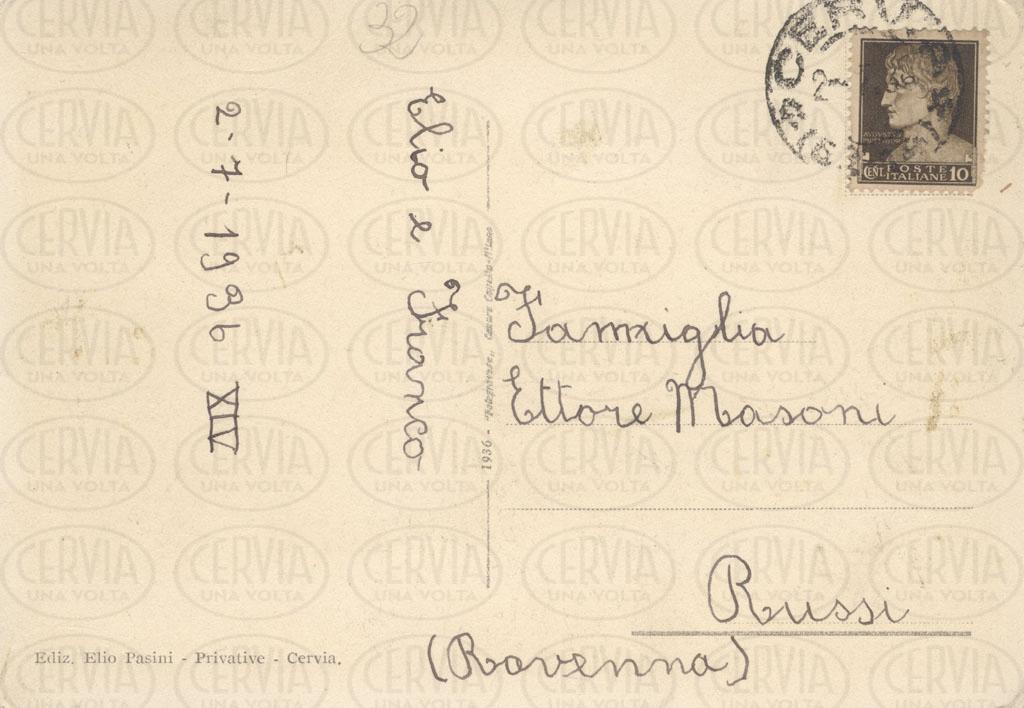 32
Elio e Franco
2-7-1936 XIV
1936 -
Famiglia
Ettore Masoni
Russi
(Ravenna)
CERVIA
POSTE
CENT. ITALIANE 10
Ediz. Elio Pasini - Privative - Cervia.
CERVIA
UNA VOLTA